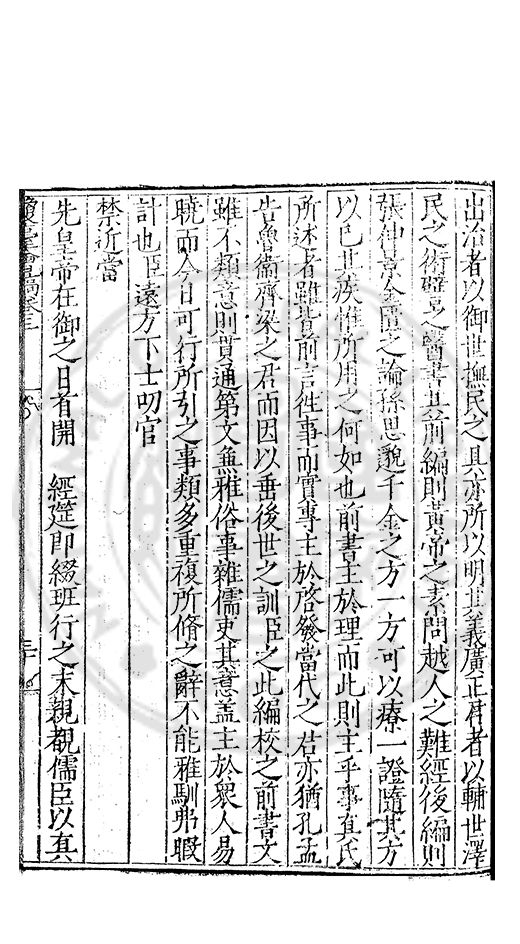 出治者以御世撫民之具亦所以明其義廣正君者以輔世澤
民之術譬之醫書其前編則黃帝之素問越人之難經後編則
張仲景金匱之論孫思邈千金之方一方可以療一證隨其方
以已其疾惟所用之何如也前書主於理而此則主乎事真氏
所述者雖皆前言徃事而實專主於啓發當代之君亦猶孔孟
告魯衞齊梁之君而因以垂後世之訓臣之此編校之前書文
雖不類意則貫通第文兼雅俗事雜儒吏其意盖主於衆人易
曉而今日可行所引之事類多重複所脩之辭不能雅馴弗暇
計也臣遠方下士叨官
禁近當
先皇帝在御之日首開　經筵即綴班行之末親覩儒臣以真
瓊臺會稿卷三